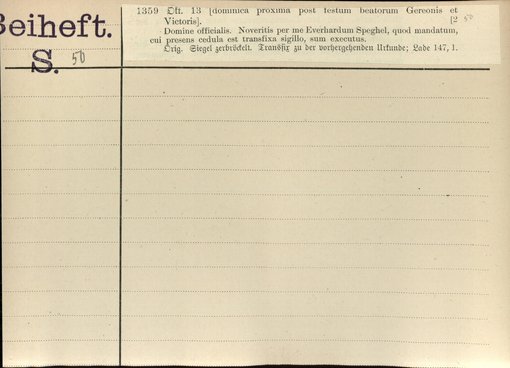 Beiheft.
S. 50
1359 Okt. 13 [dominica proxima post festum beatorum Gereonis et
Victoris]. [2 50
Domine officialis. Noveritis per me Everhardum Speghel, quod mandatum,
cui presens cedula est transfixa sigillo, sum executus.
Orig. Siegel zerbröckelt. Transfix zu der vorhergehenden Urkunde; Lade 147, 1.